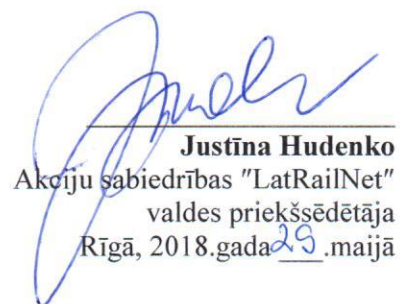 Justīna Hudenko
Akciju sabiedrības "LatRailNet"
valdes priekšsēdētāja
Rīgā, 2018.gada 29.maijā